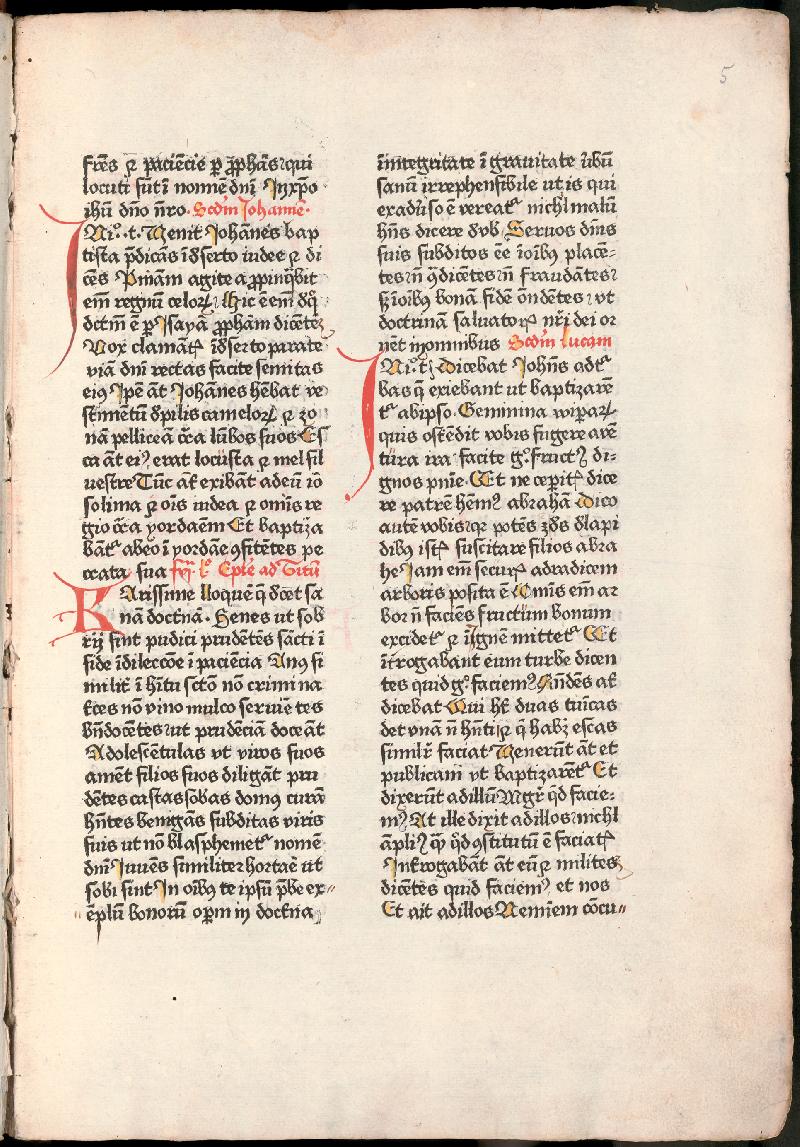 5
frēs ⁊ paciēcie ꝑ ꝓphās qui
locuti sūt ī nomīe dn̄i In xp̄o
ihū dn̄o nr̄o. Scdm Johannē.
IN i. t. Venit Johānes bap
tista p̄dicās ī dserto iudee ⁊ di
cēs Pn̄iam agite appinq̄bit
em̄ regnū celoꝝ Hic ē em̄ d' q̊
dctm̄ ē ꝑ Isayā ꝓphām dicētē
Vox clamātꝭ ī dserto parate
viā dn̄i rectas facite semitas
eiꝰ Ipe āt Johānes hēbat ve
stimētū d' pilis cameloꝝ ⁊ zo
nā pelliceā cc̄a lūbos suos Es
ca āt eiꝰ erat locusta ⁊ mel sil
uestre Tūc āt exibāt ad eū io
solima ⁊ oīs iudea ⁊ om̄is re
gio cc̄a yordaēm Et baptiza
bāt᷑ ab eo ī yordāe ꝯfitētes pe
ccata sua Eple ad Titū
KArissime lloquē q̄ dcet sa
nā doctnā. Senes ut sob
rij sint pudici prudētes sācti ī
fide ī dileccōe ī paciēcia Anꝰ si
milit̄ ī hītu sctō nō crimina
t̄ces nō vino multo seruiētes
bn̄ docētes ut prudēciā doceāt
Adolescētulas vt viros suos
amēt filios suos diligāt pru
dētes castas sobas domꝰ curā
hn̄tes benignas subditas viris
suis ut nō blasphemet᷑ nomē
dn̄i Iuuēs similiter hortare ut
sobi sint In oībꝰ te ipsū p̄be ex
ēplū bonorū oꝑm in doctna
ī integritate ī grauitate ūbū
sanū irrephensibile ut is qui
ex aduso ē vereat᷑ nichl malū
hn̄s dicere d' vob Seruos dn̄is
suis subditos eē ī oībꝰ placē
tes nō ꝯdicētes nō fraudātes
sꝫ ī oībꝰ bonā fidē on̄dētes vt
doctrinā saluatorꝭ nr̄i dei or
nēt in omnibus Scdm lucam
IN i. t. dicebat Johēs ad t᷑
bas q̄ exiebant ut baptizarē
t᷑ ab ipso. Gemmina viparꝝ
quis ostēdit vobis fugere a vē
tura ira facite g̊ fructꝰ di
gnos pn̄ie. Et ne ceꝑitꝭ dice
re patrē hēmꝰ abrahā dico
autē vobis qꝛ potēs ē ds d' lapi
dibꝰ istꝭ suscitare filios abra
he Iam em̄ securꝭ ad radicem
arboris posita ē Omīs em̄ ar
bor nō faciēs fructum bonum
excidet᷑ ⁊ ī ignē mittet᷑ Et
īt̄rogabant eum turbe dicen
tes quid g̊ faciemꝰ Rn̄dēs āt
dicebat Qui hꝫ duas tunicas
det vnā nō hn̄ti ⁊ q̄ habꝫ escas
similr̄ faciat Venerūt āt et
publicani vt baptizarēt᷑ Et
dixerūt ad illū Mgr̄ qd facie
mꝰ At ille dixit ad illos nichl
āpliꝰ q̄ qd ꝯstitutū ē faciatꝭ
Int̄rogabāt āt eū ⁊ milites
dicētes quid faciemꝰ et nos
Et ait ad illos Neminem cōcu